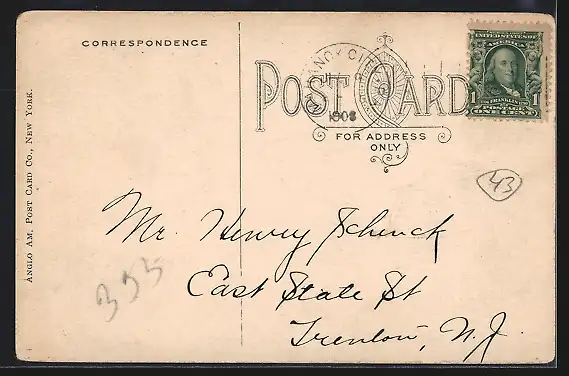 CORRESPONDENCE
POST CARD
FOR ADDRESS
ONLY
ANGLO AM. POST CARD CO., NEW YORK.
CITY
1906
UNITED STATES OF
AMERICA
1 1
FRANKLIN
POSTAGE
ONE CENT
43
Mr. Henry Schenck
East State St
Trenton, N.J.
353